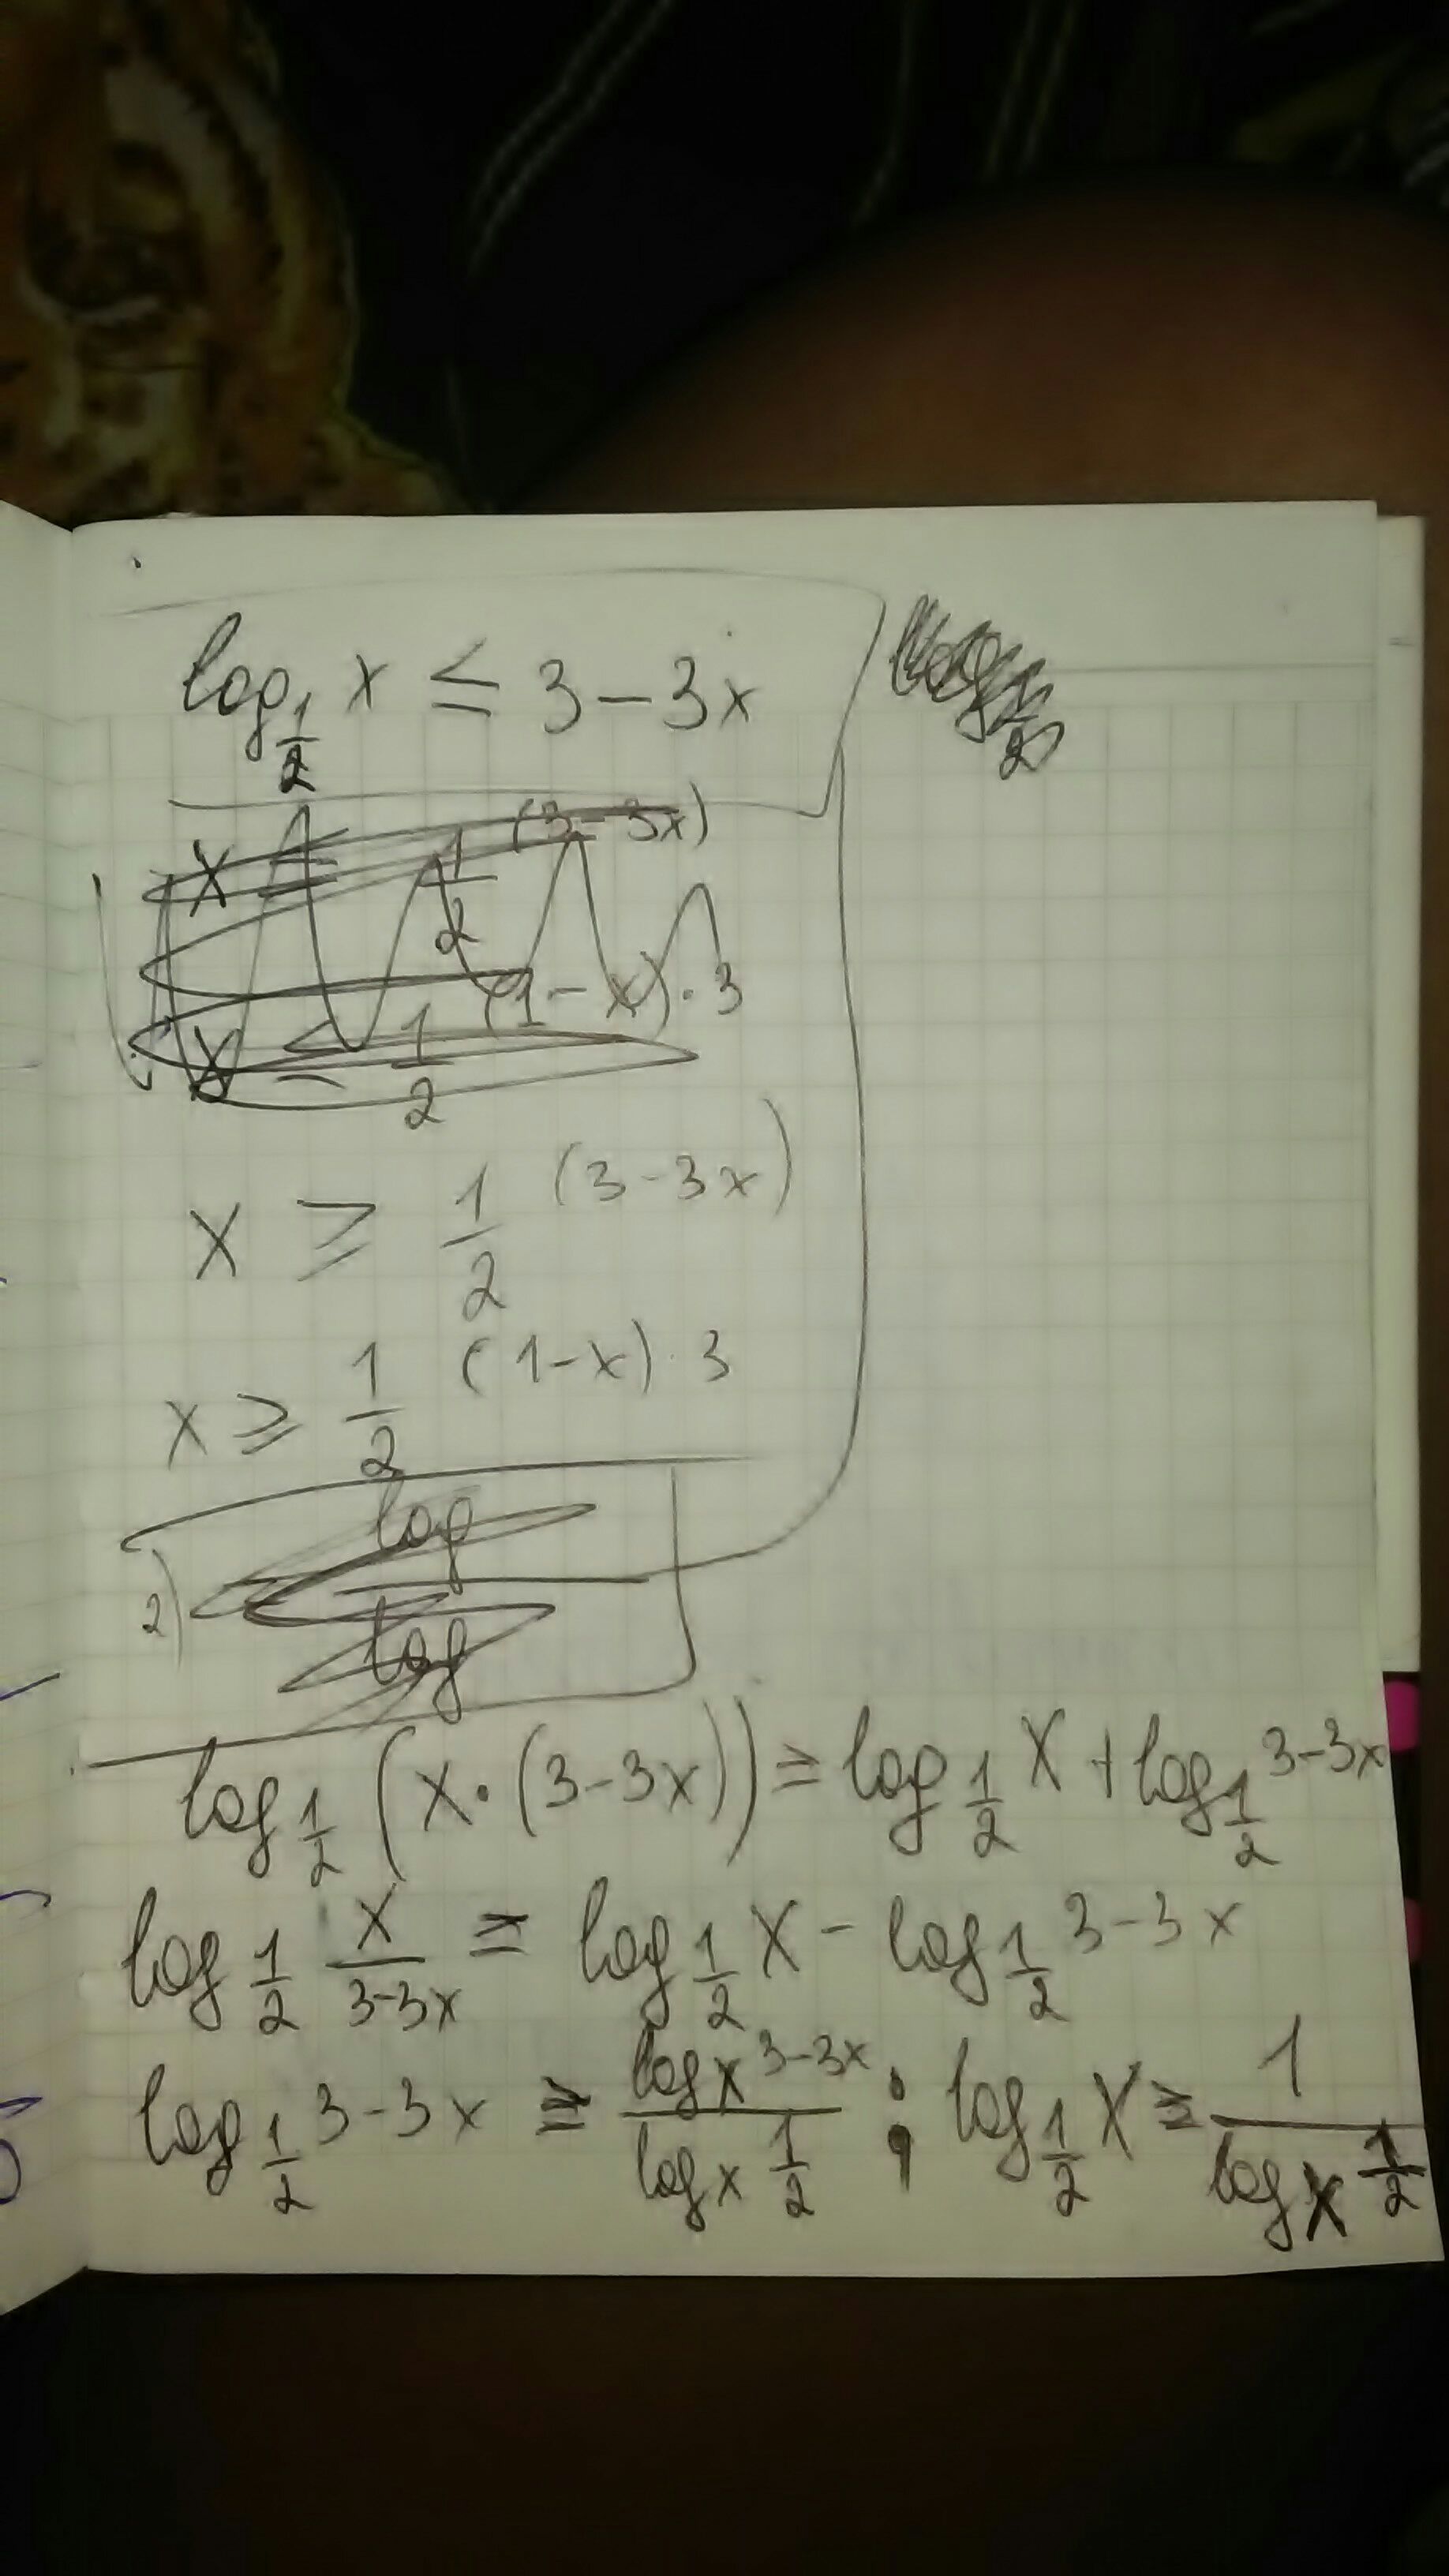 log_{1/2} x ≤ 3 - 3x
x ≥ 1/2^{(3-3x)}
x ≥ 1/2^{(1-x)·3}
2)
log_{1/2} (x · (3-3x)) = log_{1/2} x + log_{1/2} 3-3x
log_{1/2} x/(3-3x) = log_{1/2} x - log_{1/2} 3-3x
log_{1/2} 3-3x = (log_x 3-3x)/(log_x 1/2) ; log_{1/2} x = 1/(log_x 1/2)